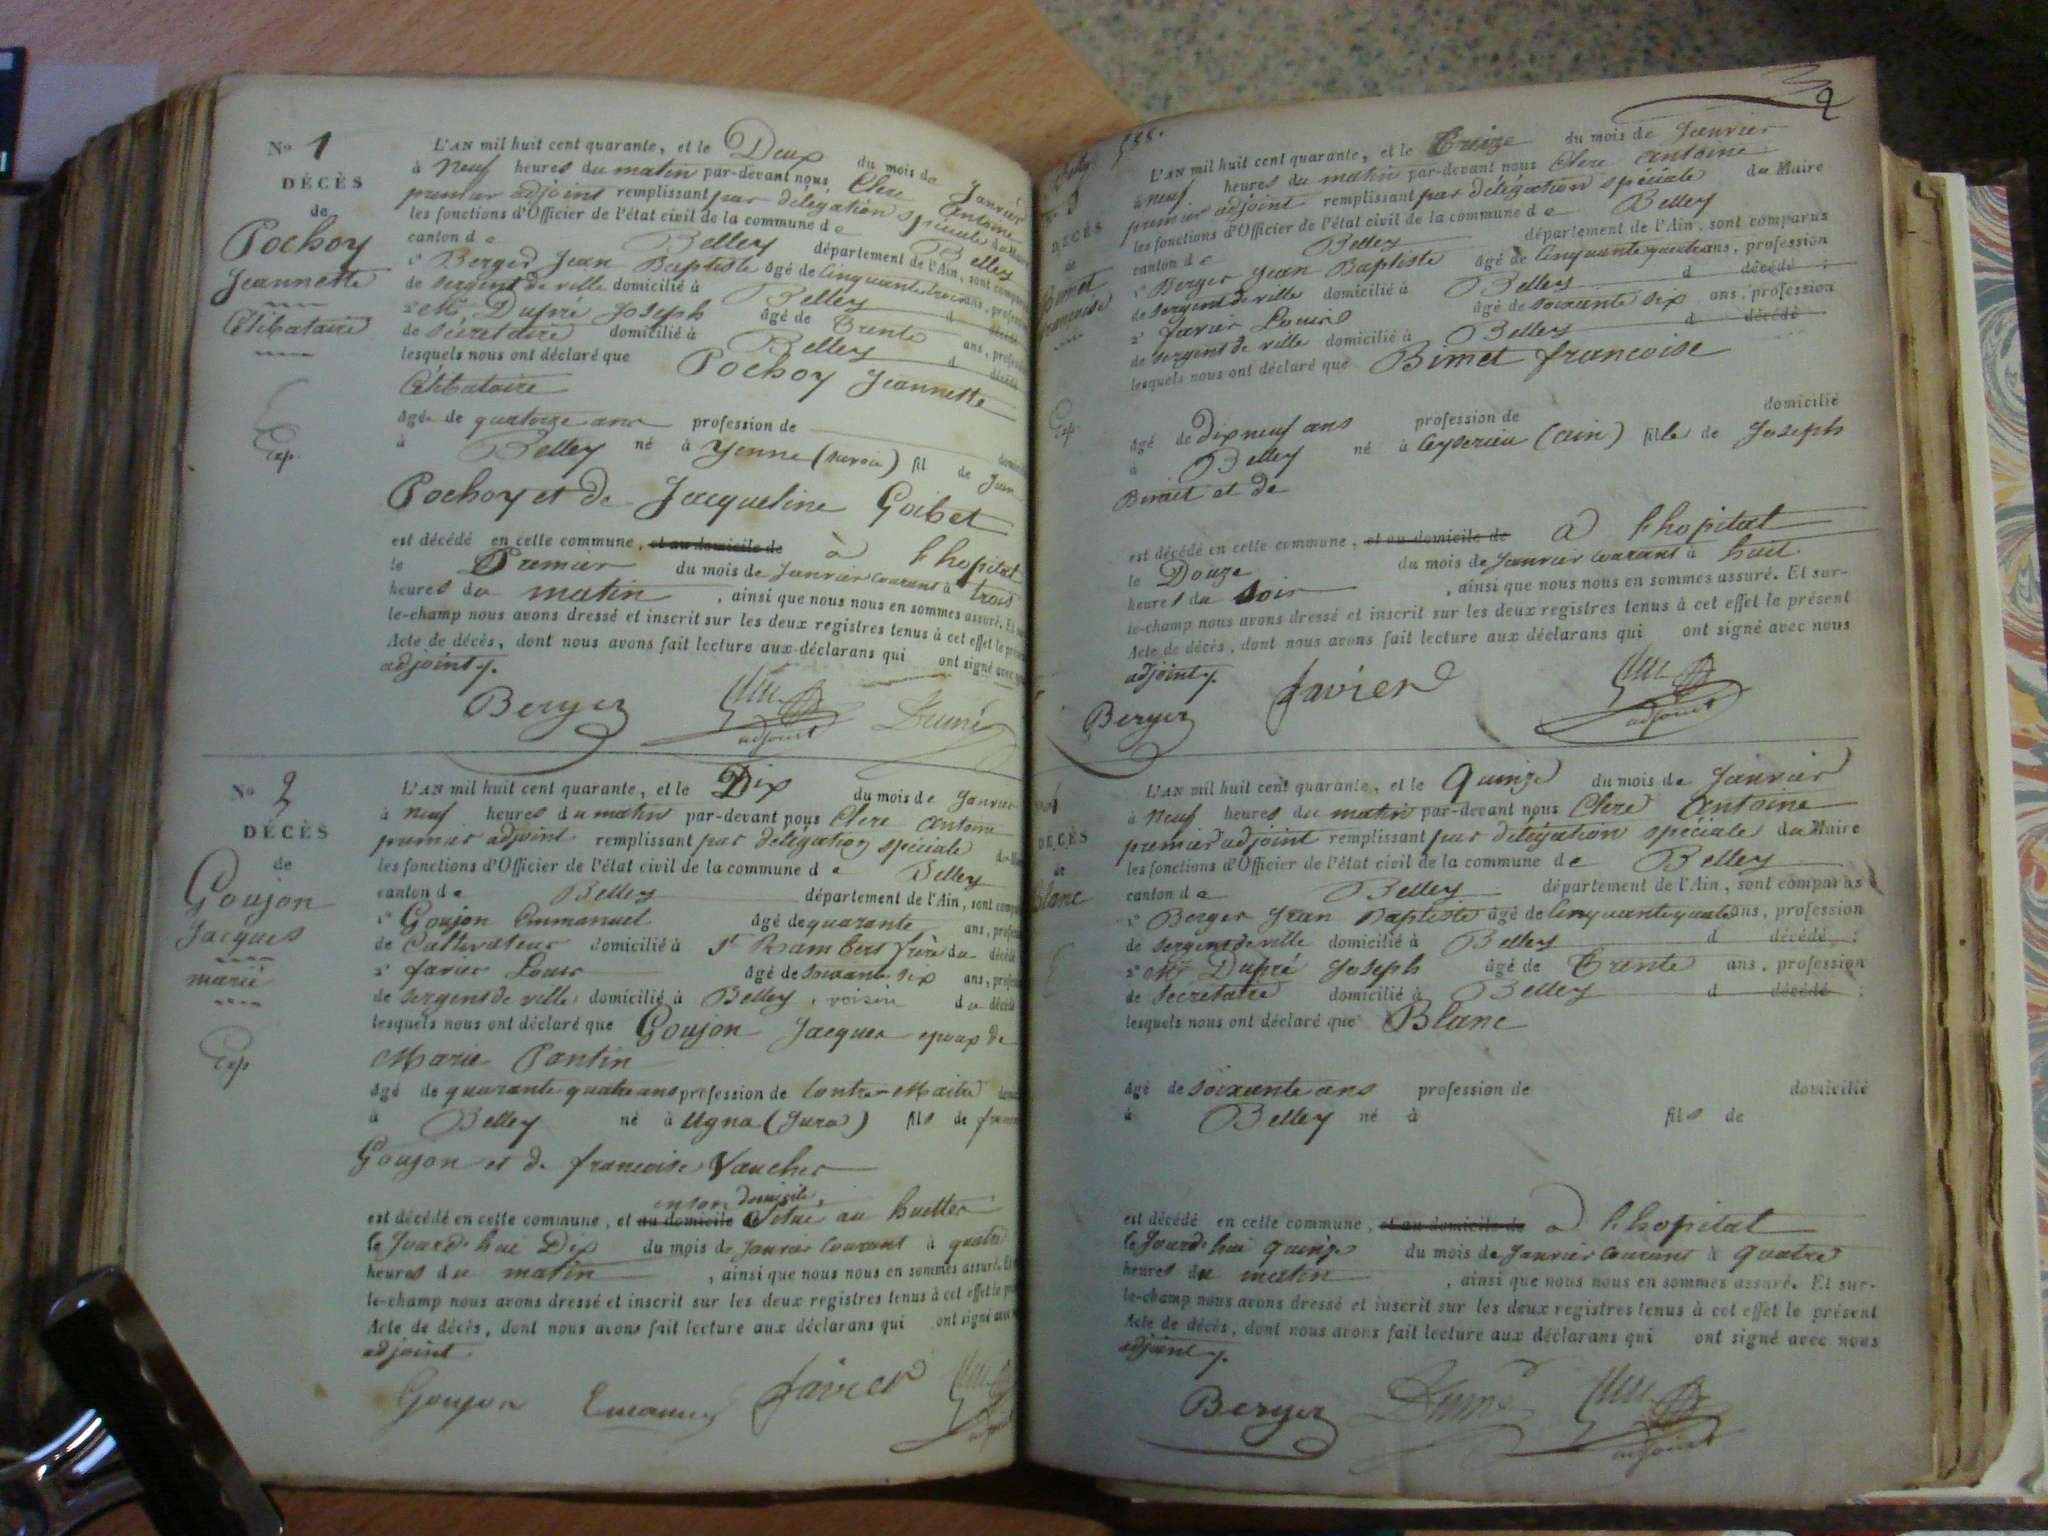 No 1
DÉCÈS
de
Pochoy
Jeannette
Célibataire
Exp.
L'AN mil huit cent quarante, et le Deux du mois de Janvier
à neuf heures du matin par-devant nous Clerc Antoine
premier adjoint remplissant par délégation spéciale du Maire
les fonctions d'Officier de l'état civil de la commune de Belley
canton de Belley département de l'Ain, sont comparus
1° Berger Jean Baptiste âgé de cinquante trois ans, profession
de sergent de ville domicilié à Belley d décédé
2° Mr Dupré Joseph âgé de Trente ans, profession
de secretaire domicilié à Belley d décédé
lesquels nous ont déclaré que Pochoy Jeannette
Célibataire
âgée de quatorze ans profession de domicilié
à Belley né à Yenne (Savoie) fil de Jean
Pochoy et de Jacqueline Goibet
est décédé en cette commune, et au domicile de à l'hopital
le Premier du mois de Janvier courant à trois
heures du matin, ainsi que nous nous en sommes assuré. Et sur-
le-champ nous avons dressé et inscrit sur les deux registres tenus à cet effet le présent
Acte de décès, dont nous avons fait lecture aux déclarans qui ont signé avec nous
adjoint.
Berger Clerc adjoint Dupré
No 2
DÉCÈS
de
Goujon
Jacques
marié
Exp.
L'AN mil huit cent quarante, et le Dix du mois de Janvier
à neuf heures du matin par-devant nous Clerc Antoine
premier adjoint remplissant par délégation spéciale du Maire
les fonctions d'Officier de l'état civil de la commune de Belley
canton de Belley département de l'Ain, sont comparus
1° Goujon Emmanuel âgé de quarante ans, profession
de Cultivateur domicilié à St Rambert frère du décédé
2° favier Louis âgé de soixante six ans, profession
de sergent de ville domicilié à Belley, voisin du décédé
lesquels nous ont déclaré que Goujon Jacques epoux de
Marie Pantin
âgé de quarante quatre ans profession de Contre-Maitre domicilié
à Belley né à Ugna (Jura) fils de
Goujon et de françoise Vaucher
en son domicile
est décédé en cette commune, et au domicile de situé au huttes
le Jourd'hui Dix du mois de Janvier courant à quatre
heures du matin, ainsi que nous nous en sommes assuré. Et
le-champ nous avons dressé et inscrit sur les deux registres tenus à cet effet le présent
Acte de décès, dont nous avons fait lecture aux déclarans qui ont signé avec
adjoint.
Goujon Emanuel favier Clerc adjoint
2
3
DÉCÈS
de
Bimet
françoise
Exp.
L'AN mil huit cent quarante, et le Treize du mois de Janvier
à neuf heures du matin par-devant nous Clerc Antoine
premier adjoint remplissant par délégation spéciale du Maire
les fonctions d'Officier de l'état civil de la commune de Belley
canton de Belley département de l'Ain, sont comparus
1° Berger Jean Baptiste âgé de cinquante quatre ans, profession
de sergent de ville domicilié à Belley d décédé :
2° favier Louis âgé de soixante six ans, profession
de sergent de ville domicilié à Belley d décédé
lesquels nous ont déclaré que Bimet francoise
âgé de dix neuf ans profession de domicilié
à Belley né à Ceyserieu (ain) fille de Joseph
Bimet et de
est décédé en cette commune, et au domicile de à l'hopital
le Douze du mois de Janvier courant à huit
heures du soir, ainsi que nous nous en sommes assuré. Et sur-
le-champ nous avons dressé et inscrit sur les deux registres tenus à cet effet le présent
Acte de décès, dont nous avons fait lecture aux déclarans qui ont signé avec nous
adjoint.
Berger favier Clerc adjoint
DÉCÈS
de
Blanc
L'AN mil huit cent quarante, et le quinze du mois de Janvier
à neuf heures du matin par-devant nous Clerc Antoine
premier adjoint remplissant par délégation spéciale du Maire
les fonctions d'Officier de l'état civil de la commune de Belley
canton de Belley département de l'Ain, sont comparus
1° Berger Jean Baptiste âgé de cinquante quatre ans, profession
de sergent de ville domicilié à Belley d décédé :
2° Mr Dupré Joseph âgé de Trente ans, profession
de secretaire domicilié à Belley d décédé :
lesquels nous ont déclaré que Blanc
âgé de soixante ans profession de domicilié
à Belley né à fils de
est décédé en cette commune, et au domicile de à l'hopital
le Jourd'hui quinze du mois de Janvier courant à quatre
heures du matin, ainsi que nous nous en sommes assuré. Et sur-
le-champ nous avons dressé et inscrit sur les deux registres tenus à cet effet le présent
Acte de décès, dont nous avons fait lecture aux déclarans qui ont signé avec nous
adjoint.
Berger Dupré Clerc adjoint